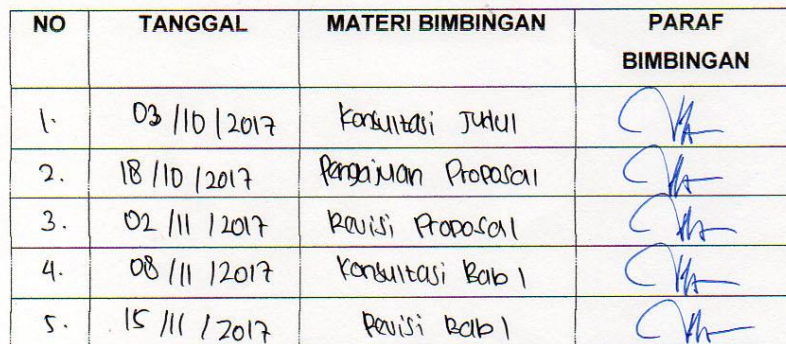 NO TANGGAL MATERI BIMBINGAN PARAF BIMBINGAN
1. 03/10/2017 Konsultasi Judul
2. 18/10/2017 Pengajuan Proposal
3. 02/11/2017 Revisi Proposal
4. 08/11/2017 Konsultasi Bab 1
5. 15/11/2017 Revisi Bab 1